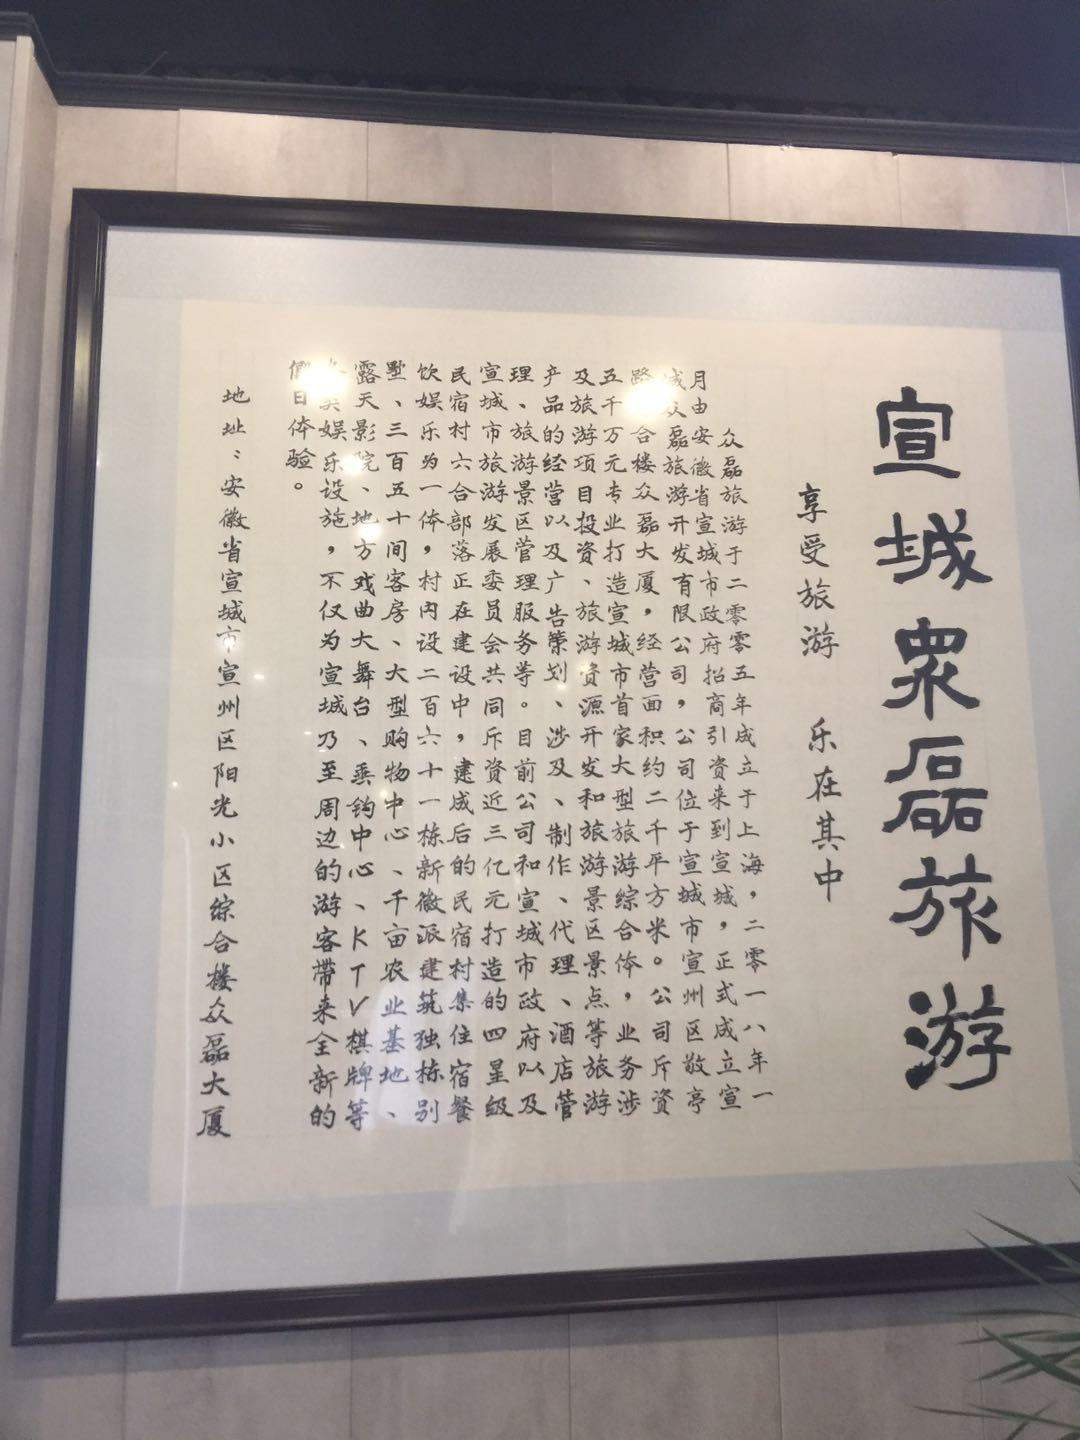 宣城眾磊旅游
享受旅游 乐在其中
众磊旅游于二零零五年成立于上海，二零一八年一
月由安徽省宣城市政府招商引资来到宣城，正式成立宣
城众磊旅游开发有限公司，公司位于宣城市宣州区敬亭
路合楼众磊大厦，经营面积约二千平方米。公司斥资
五千万元专业打造宣城市首家大型旅游综合体，业务涉
及旅游项目投资、旅游资源开发和旅游景区景点等旅游
产品的经营以及广告策划、涉及、制作、代理、酒店管
理、旅游景区管理服务等。目前公司和宣城市政府以及
宣城市旅游发展委员会共同斥资近三亿元打造的四星级
民宿村六合部落正在建设中，建成后的民宿村集住宿餐
饮娱乐为一体，村内设二百六十一栋新徽派建筑独栋别
墅、三百五十间客房、大型购物中心、千亩农业基地、
露天影院、地方戏曲大舞台、垂钓中心、KTV棋牌等
娱乐设施，不仅为宣城乃至周边的游客带来全新的
假日体验。
地址：安徽省宣城市宣州区阳光小区综合楼众磊大厦